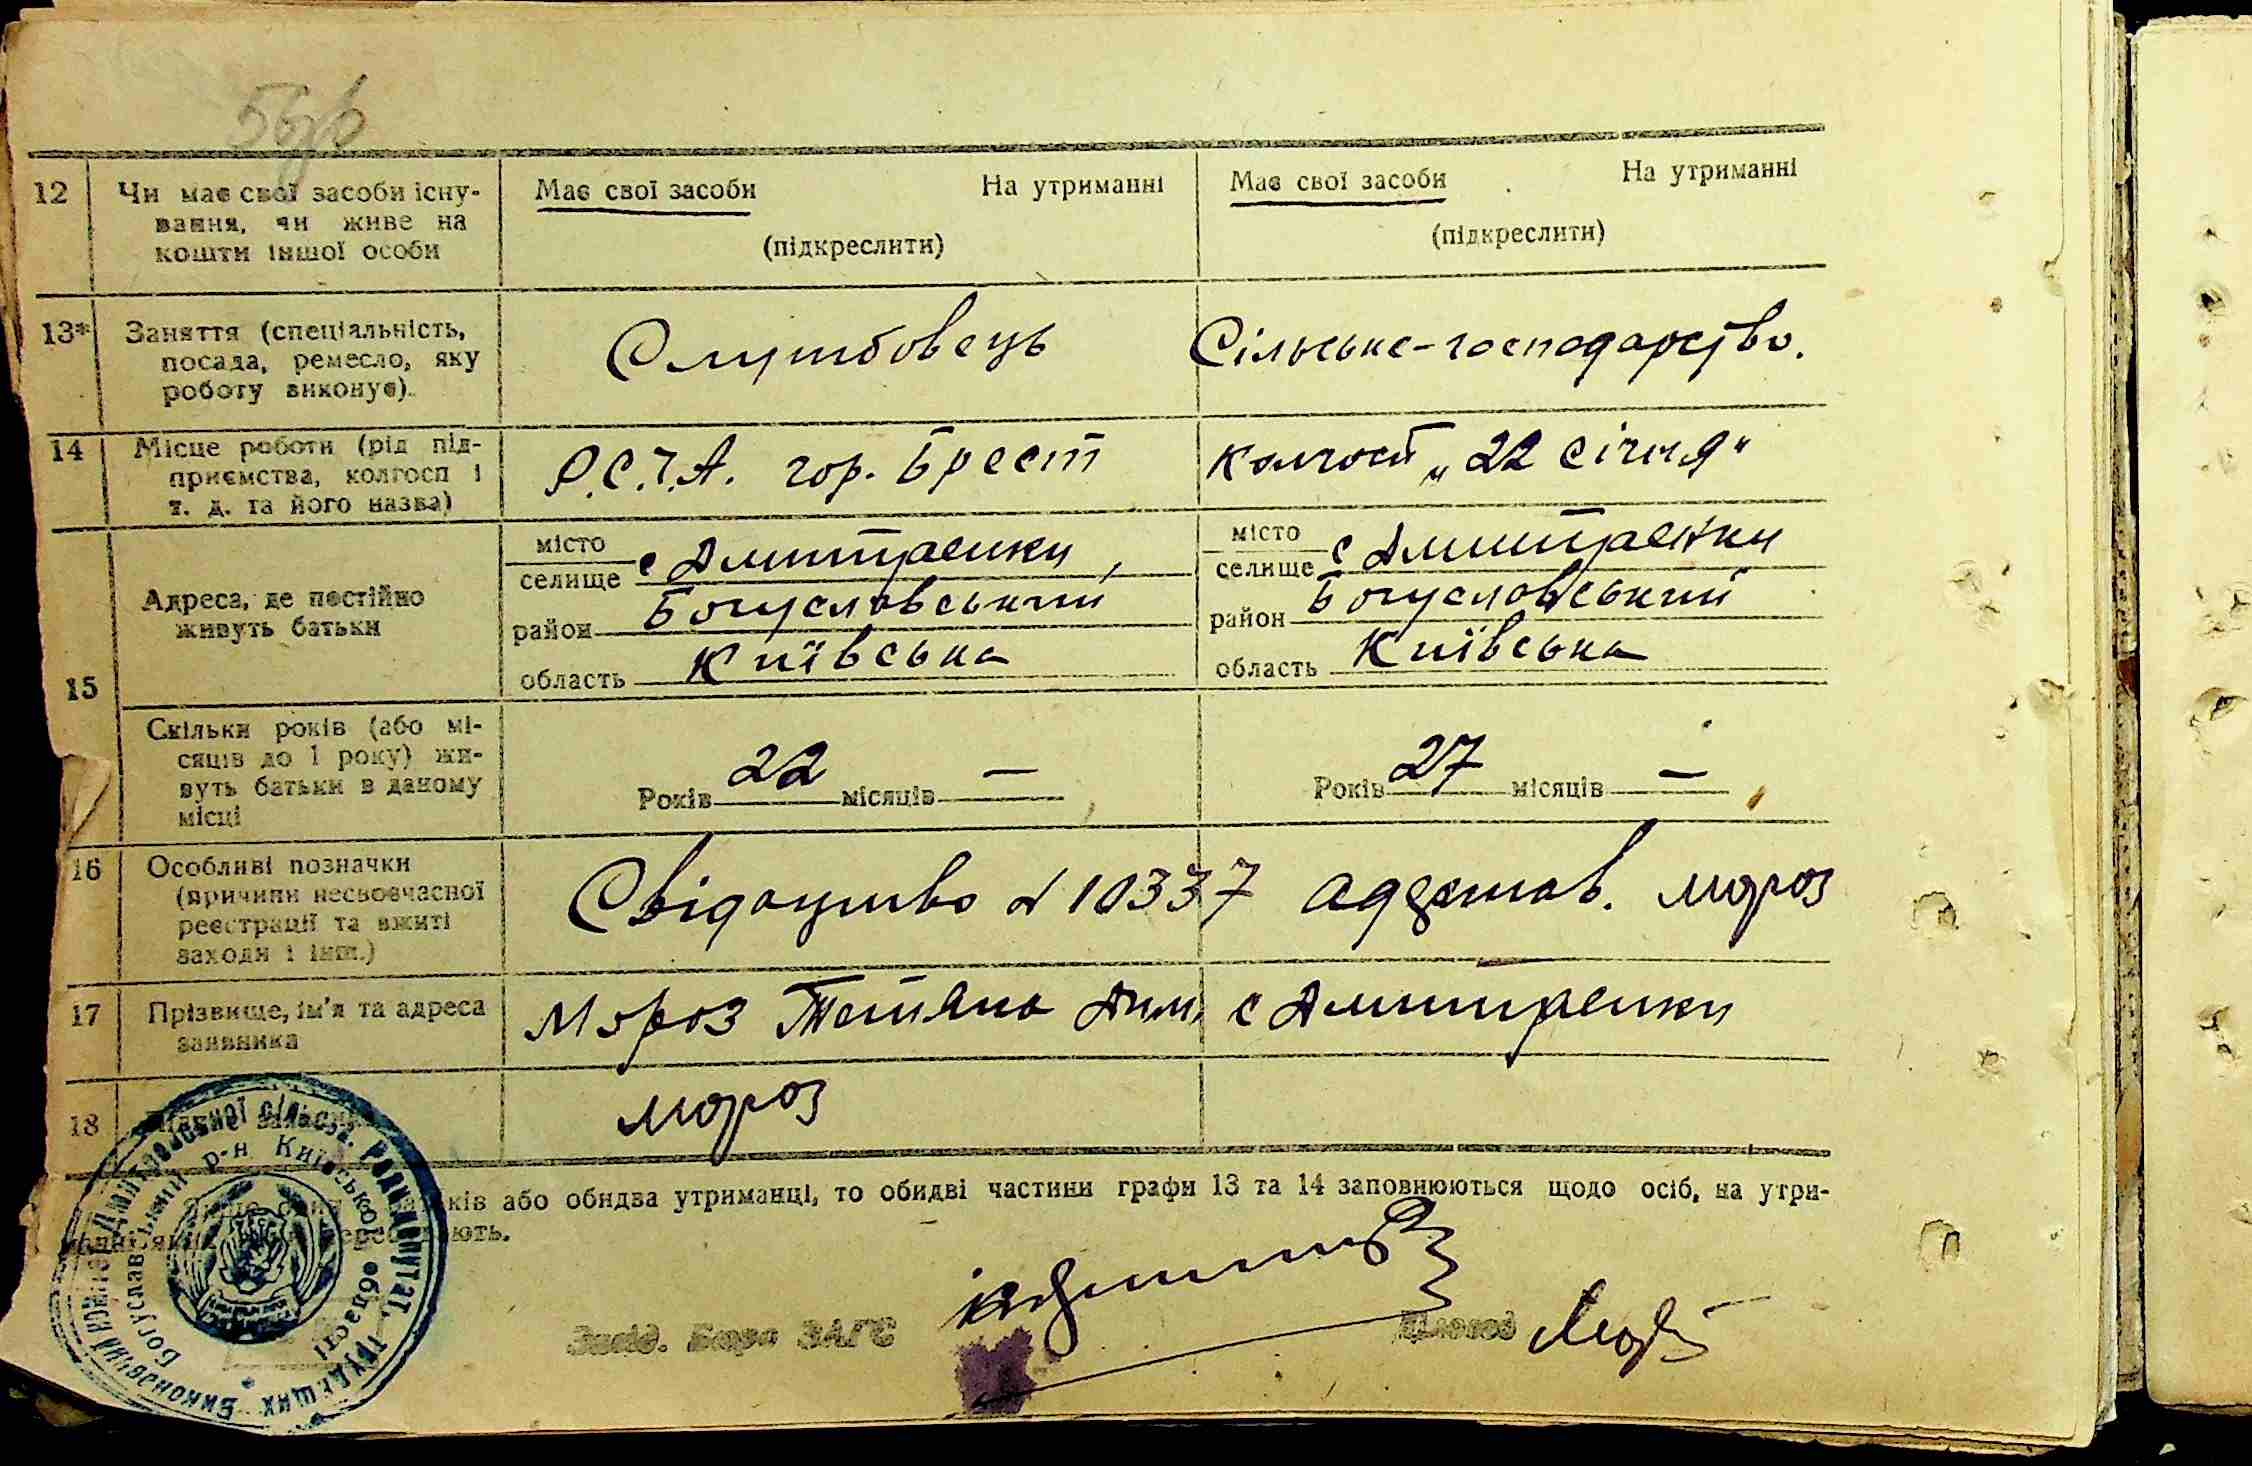 12
Чи має свої засоби існу-
вання, чи живе на
кошти іншої особи
Має свої засоби На утриманні
(підкреслити)
Має свої засоби На утриманні
(підкреслити)
13*
Заняття (спеціальність,
посада, ремесло, яку
роботу виконує).
Службовець
Сільське-господарство.
14
Місце роботи (рід під-
приємства, колгосп і
т. д. та його назва)
Р.С.Ч.А. гор. Брест
Колгосп „22 Січня"
15
Адреса, де постійно
живуть батьки
місто
селище с Дмитренки,
район Богуславський
область Київська
місто
селище с Дмитренки
район Богуславський
область Київська
Скільки років (або мі-
сяців до 1 року) жи-
вуть батьки в даному
місці
Років 22 місяців —
Років 27 місяців —
16
Особливі позначки
(причини несвоєчасної
реєстрації та вжиті
заходи і інш.)
Свідоцтво № 10337 Мороз
17
Прізвище, ім'я та адреса
заявника
Мороз Тетяна Дим. с Дмитренки
18
Мороз
ків або обидва утриманці, то обидві частини графи 13 та 14 заповнюються щодо осіб, на утри-
Завід. Бюро ЗАГС
Виконавчий
сільськ. Ради депутат. трудящих
Богуславський р-н Київської області